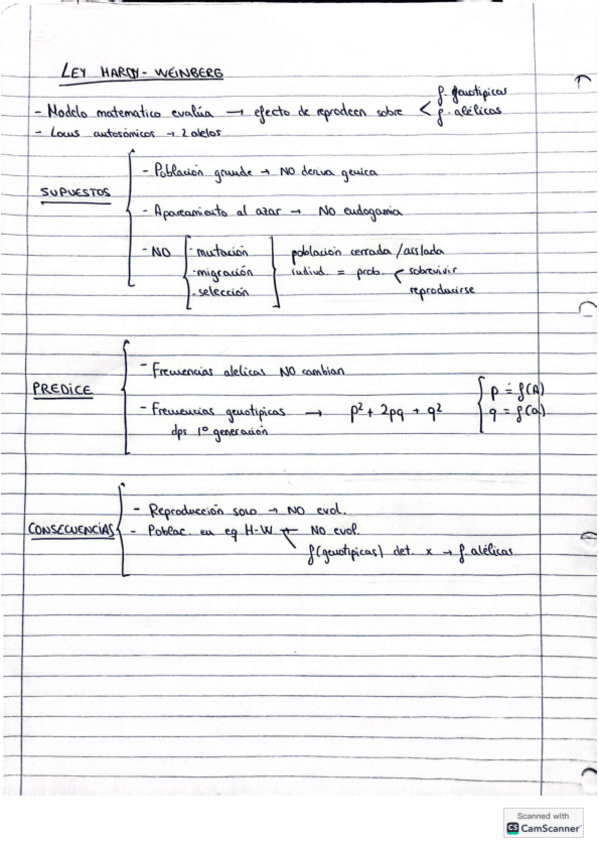 LEY HARDY-WEINBERG
- Modelo matematico evalúa → efecto de reprodccn sobre < f. genotipicas
f. alélicas
- Locus autosómicos → 2 alelos
SUPUESTOS
- Población grande → NO deriva genica
- Apareamiento al azar → NO endogamia
- NO
- mutación
- migración
- selección
población cerrada/aislada
individ. = prob. < sobrevivir
reproducirse
PREDICE
- Frecuencias alelicas NO cambian
- Frecuencias genotipicas → p²+ 2pq + q²
dps 1º generación
p = f(A)
q = f(a)
CONSECUENCIAS
- Reproducción solo → NO evol.
- Poblac. en eq H-W ← NO evol.
f(genotipicas) det. x → f. alélicas
Scanned with
CS CamScanner